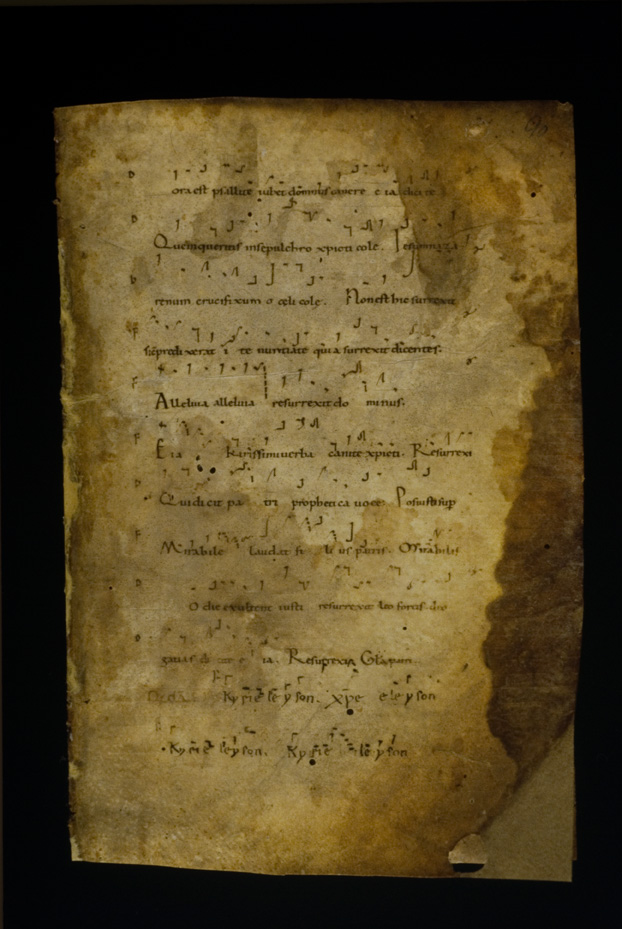 ora est psallite iubet domnus canere e ia dicite
Quem queritis insepulchro xpicti cole. Iesum naza
renum crucifixum o celi cole. Non est hic surrexit
sic predixerat i te nuntiate quia surrexit dicentes.
Alleluia alleluia resurrexit do minus.
E ia karissimi uerba canite xpicti. Resurrexi
Qui dicit pa tri prophetica uoce. Posuisti sup
Mirabile laudat fi li us patris. Mirabilis
O die exultent iusti resurrexit leo fortis
ia. Resurrexi Gla patri
Kyrie leyson. xpe eleyson
Kyrie leyson. Kyrie leyson